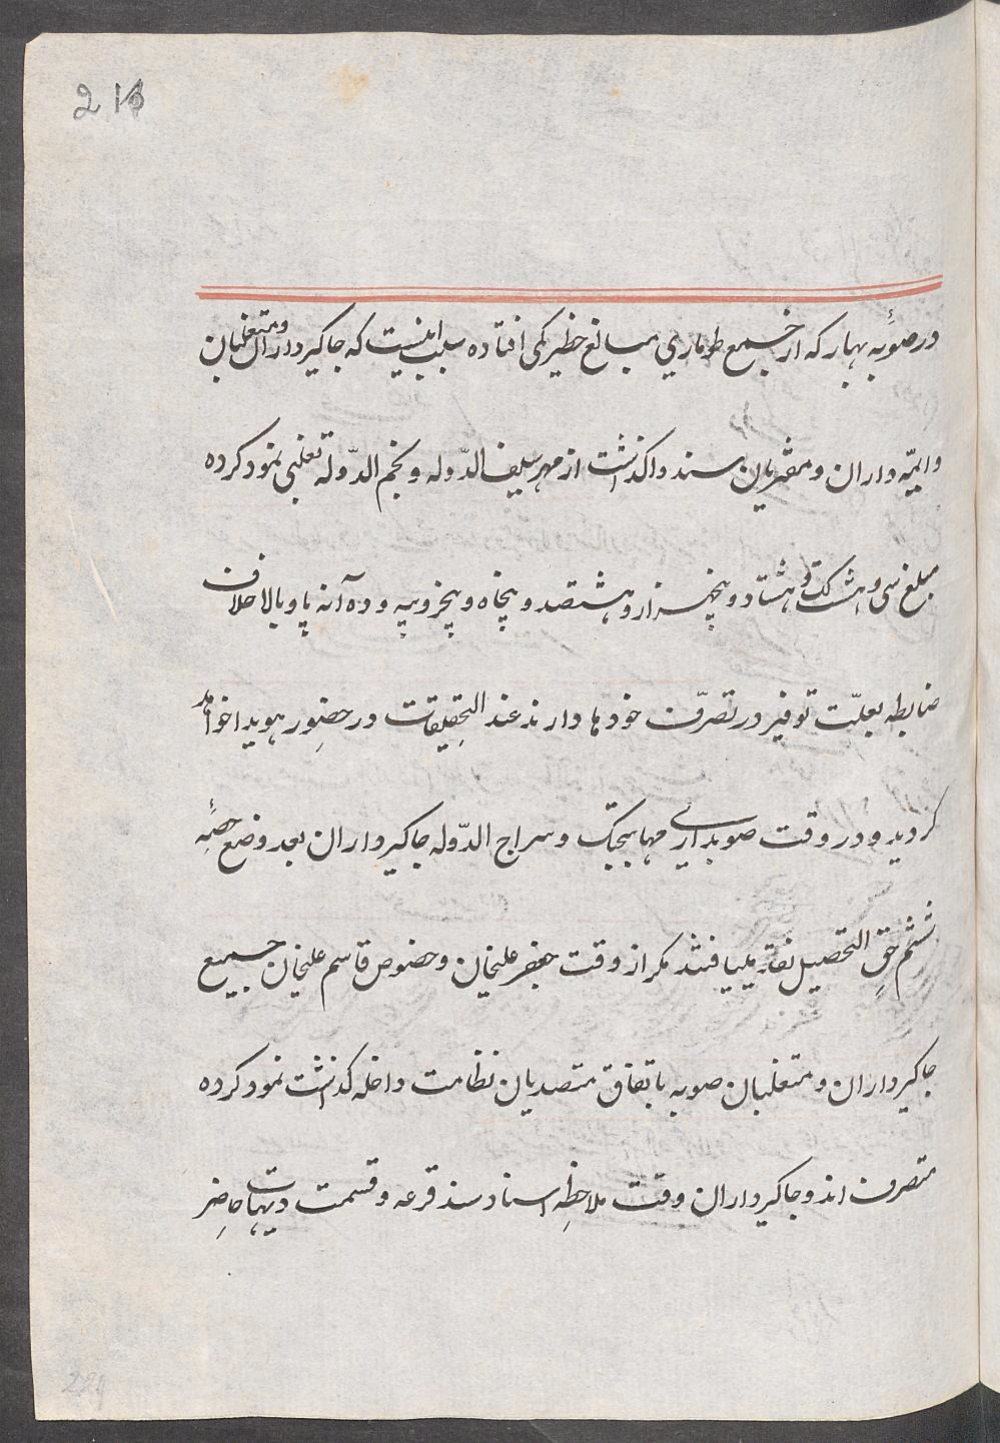 216
درصوبۂ بهار که از جمیع طوماری مبالغ خطیر کمی افتاده سبب اینست که جاکیرداران و متغلبان
وایمّه داران و مقرریان سند واکذاشت از مهر سیف الدّوله و نجم الدّوله تغلبی نمود کرده
مبلغ سی و هشت لک و هشتاد و پنجهزار و هشتصد و پنجاه و پنجروپیه و ده آنه پاو بالا خلاف
ضابطه بعلّت توفیر در تصرّف خودها دارند عند التحقیقات در حضور هویدا خواهد
کردید و در وقت صوبداری مهابتجنک و سراج الدّوله جاکیرداران بعد وضع حصّۂ
ششم حق التحصیل نقد مییافتند مکر از وقت جعفر علیخان و خصوص قاسم علیخان جمیع
جاکیرداران و متغلبان صوبه باتفاق متصدیان نظامت داخله کذاشت نمود کرده
متصرف اند و جاکیرداران وقت ملاحظه اسناد سند قرعه و قسمت دیهات حاضر